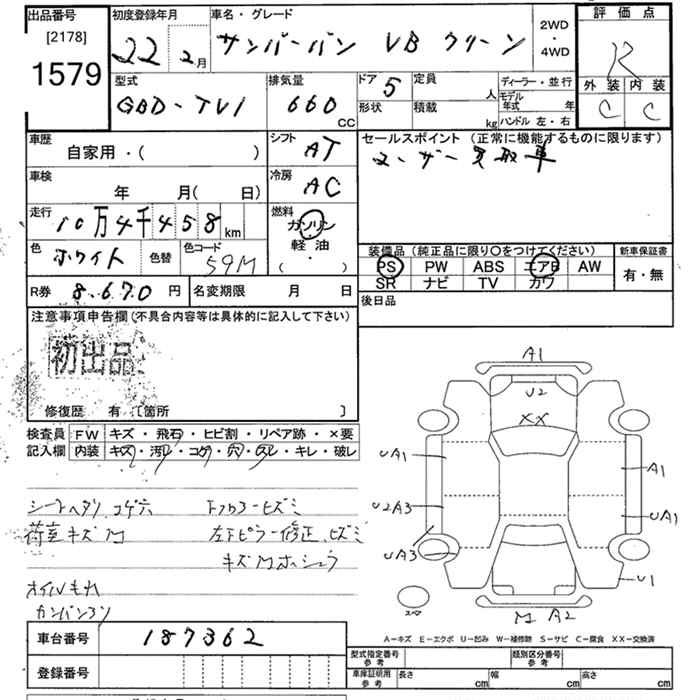 出品番号 初度登録年月 車名・グレード 2WD・4WD 評価点
[2178]
1579
22 2月
サンバーバン VB クリーン
R
外装 内装
C C
型式 排気量 ドア 定員 ディーラー・並行
GBD-TV1 660 CC 5 人 モデル年式 年
形状 積載 kg ハンドル 左・右
車歴 シフト セールスポイント (正常に機能するものに限ります)
自家用・( ) AT ユーザー買取車
車検 冷房
年 月( 日) AC
走行 燃料
10万4千458km ガソリン・軽油・( )
色 色替 色コード 装備品(純正品に限り○をつけてください) 新車保証書
ホワイト 59M PS PW ABS エアB AW 有・無
SR ナビ TV カワ
R券 8,670円 名変期限 月 日 後日品
注意事項申告欄(不具合内容等は具体的に記入して下さい)
初出品
修復歴 有 〔箇所 〕
検査員記入欄 FW キズ・飛石・ヒビ割・リペア跡・×要
内装 キズ・汚レ・コゲ・穴・スレ・キレ・破レ
シートヘタリ コゲ穴
荷室キズM
左ピラー修正ヒズミ
オイルモレ
A1
U2
XX
UA1
A1
U2A3
UA1
UA3
U1
スペア
M A2
A-キズ E-エクボ U-凹み W-補修跡 S-サビ C-腐食 XX-交換済
車台番号 187362 型式指定番号 参考 類別区分番号 参考
登録番号 車庫証明用 参考 長さ cm 幅 cm 高さ cm